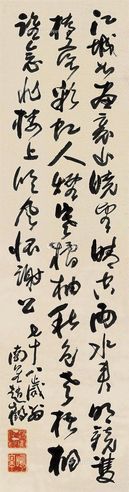 江城如畫裏山曉望晴空兩水夾明鏡雙
橋落彩虹人煙寒橘柚秋色老梧桐
誰念北樓上臨風懷謝公七十八歲翁
南